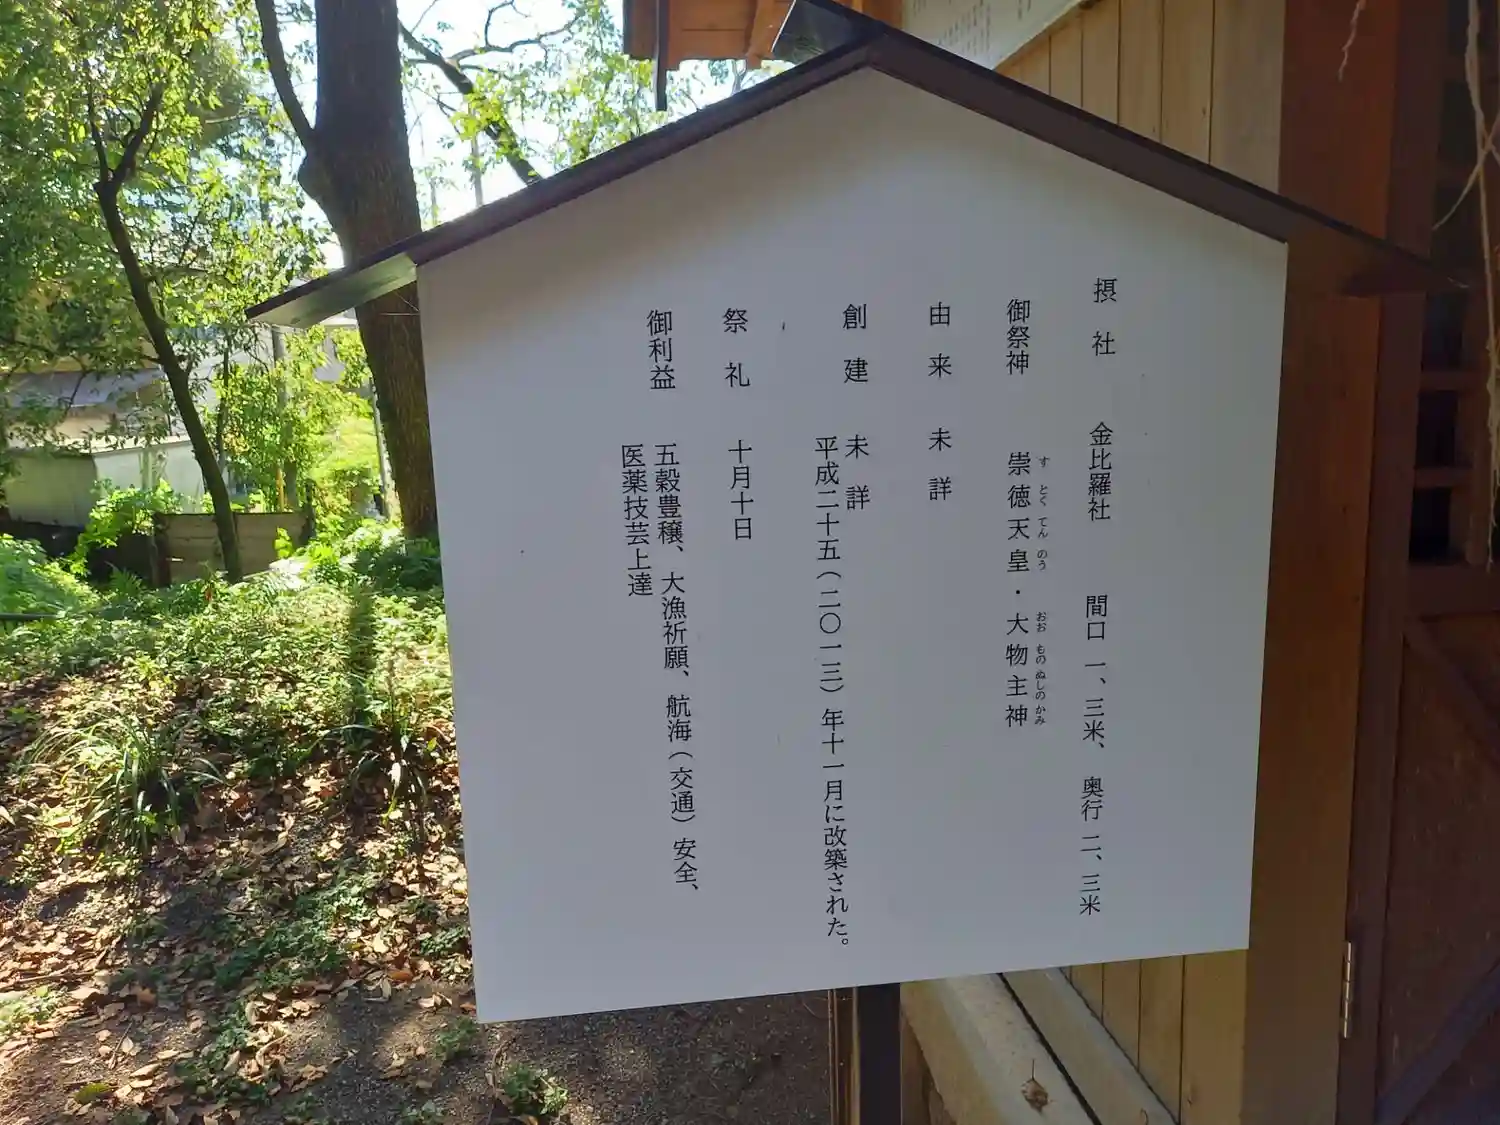 摂社 金比羅社 間口 一、三米、 奥行 二、三米
御祭神 崇徳天皇・大物主神
すとくてんのう おおものぬしのかみ
由来 未詳
創建 未詳
平成二十五(二〇一三)年十一月に改築された。
祭礼 十月十日
御利益 五穀豊穣、大漁祈願、航海(交通)安全、
医薬技芸上達